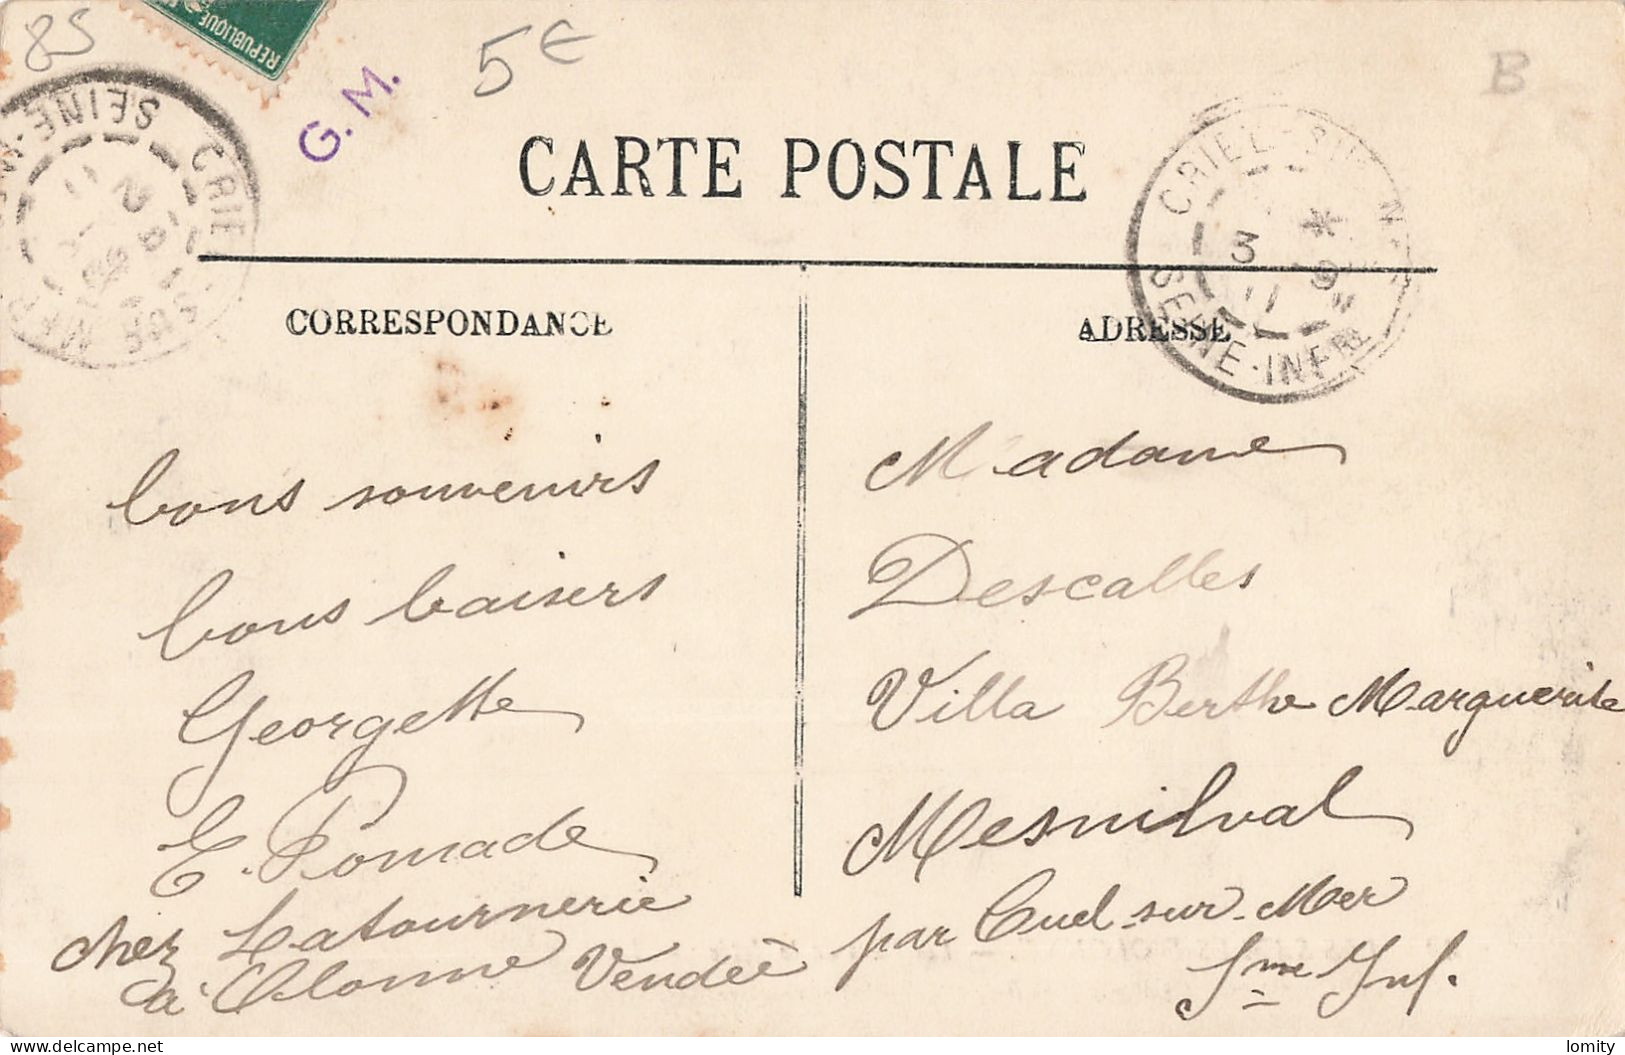 85
REPUBLIQUE
G. M.
5€
B
CARTE POSTALE
CRIEL-SUR-MER
SEINE-INFRE
CRIEL-SUR-MER
3 9
11
SEINE-INFRE
CORRESPONDANCE
ADRESSE
bons souvenirs
bons baisers
Georgette
E. Pomade
chez Latournerie
à Olonne Vendée
Madame
Descalles
Villa Berthe Marguerite
Mesnilval
par Criel-sur-Mer
Sme Inf.
lomity